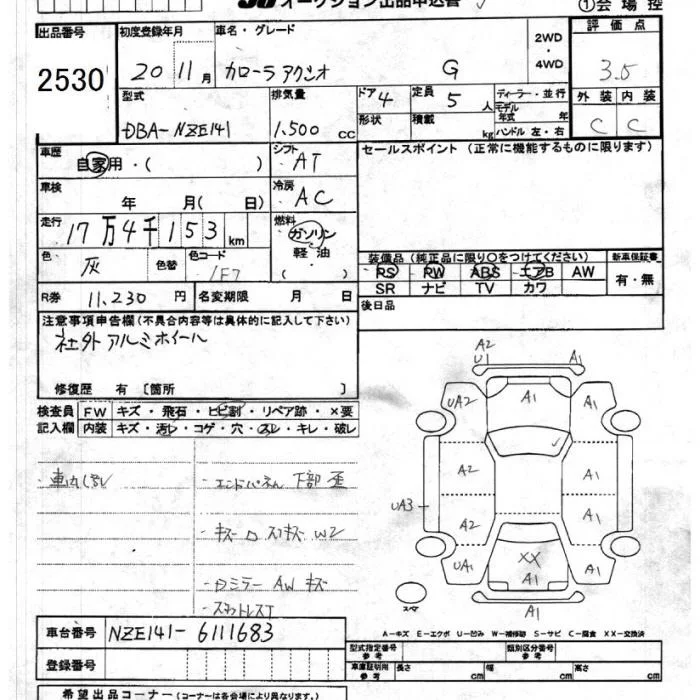 オークション出品申込書
①会場控
出品番号
2530
初度登録年月
20 11月
車名・グレード
カローラ アクシオ G
2WD
・
4WD
評価点
3.5
外装 内装
C C
型式
DBA-NZE141
排気量
1,500 cc
ドア 4
定員 5 人
形状
積載 kg
ディーラー・並行
モデル年式 年
ハンドル 左・右
車歴
自家用・( )
シフト
AT
セールスポイント(正常に機能するものに限ります)
車検
年 月( 日)
冷房
AC
走行
17万4千153km
燃料
ガソリン
軽油
( )
色
灰
色替
色コード
1F7
装備品(純正品に限り〇をつけてください)
新車保証書
RS PW ABS エアB AW
SR ナビ TV カワ
有・無
R券 11,230円
名変期限 月 日
後日品
注意事項申告欄(不具合内容等は具体的に記入して下さい)
社外アルミホイール
修復歴 有〔箇所 〕
検査員
記入欄
FW キズ・飛石・ヒビ割・リペア跡・×要
内装 キズ・汚レ・コゲ・穴・スレ・キレ・破レ
・エンドパネル 下部 歪
・キズ ロ スリキズ W2
・ロミラー AW キズ
A2
U1
A1
UA2
A1
A1
A2
A1
UA3
A2
A1
UA1
XX
A1
A1
A1
スペア
A-キズ E-エクボ U-凹み W-補修跡 S-サビ C-腐食 XX-交換済
車台番号
NZE141-6111683
登録番号
型式指定番号
参考
類別区分番号
参考
車庫証明用
参考
長さ cm
幅 cm
高さ cm
希望出品コーナー(コーナーは各会場により異なります。)